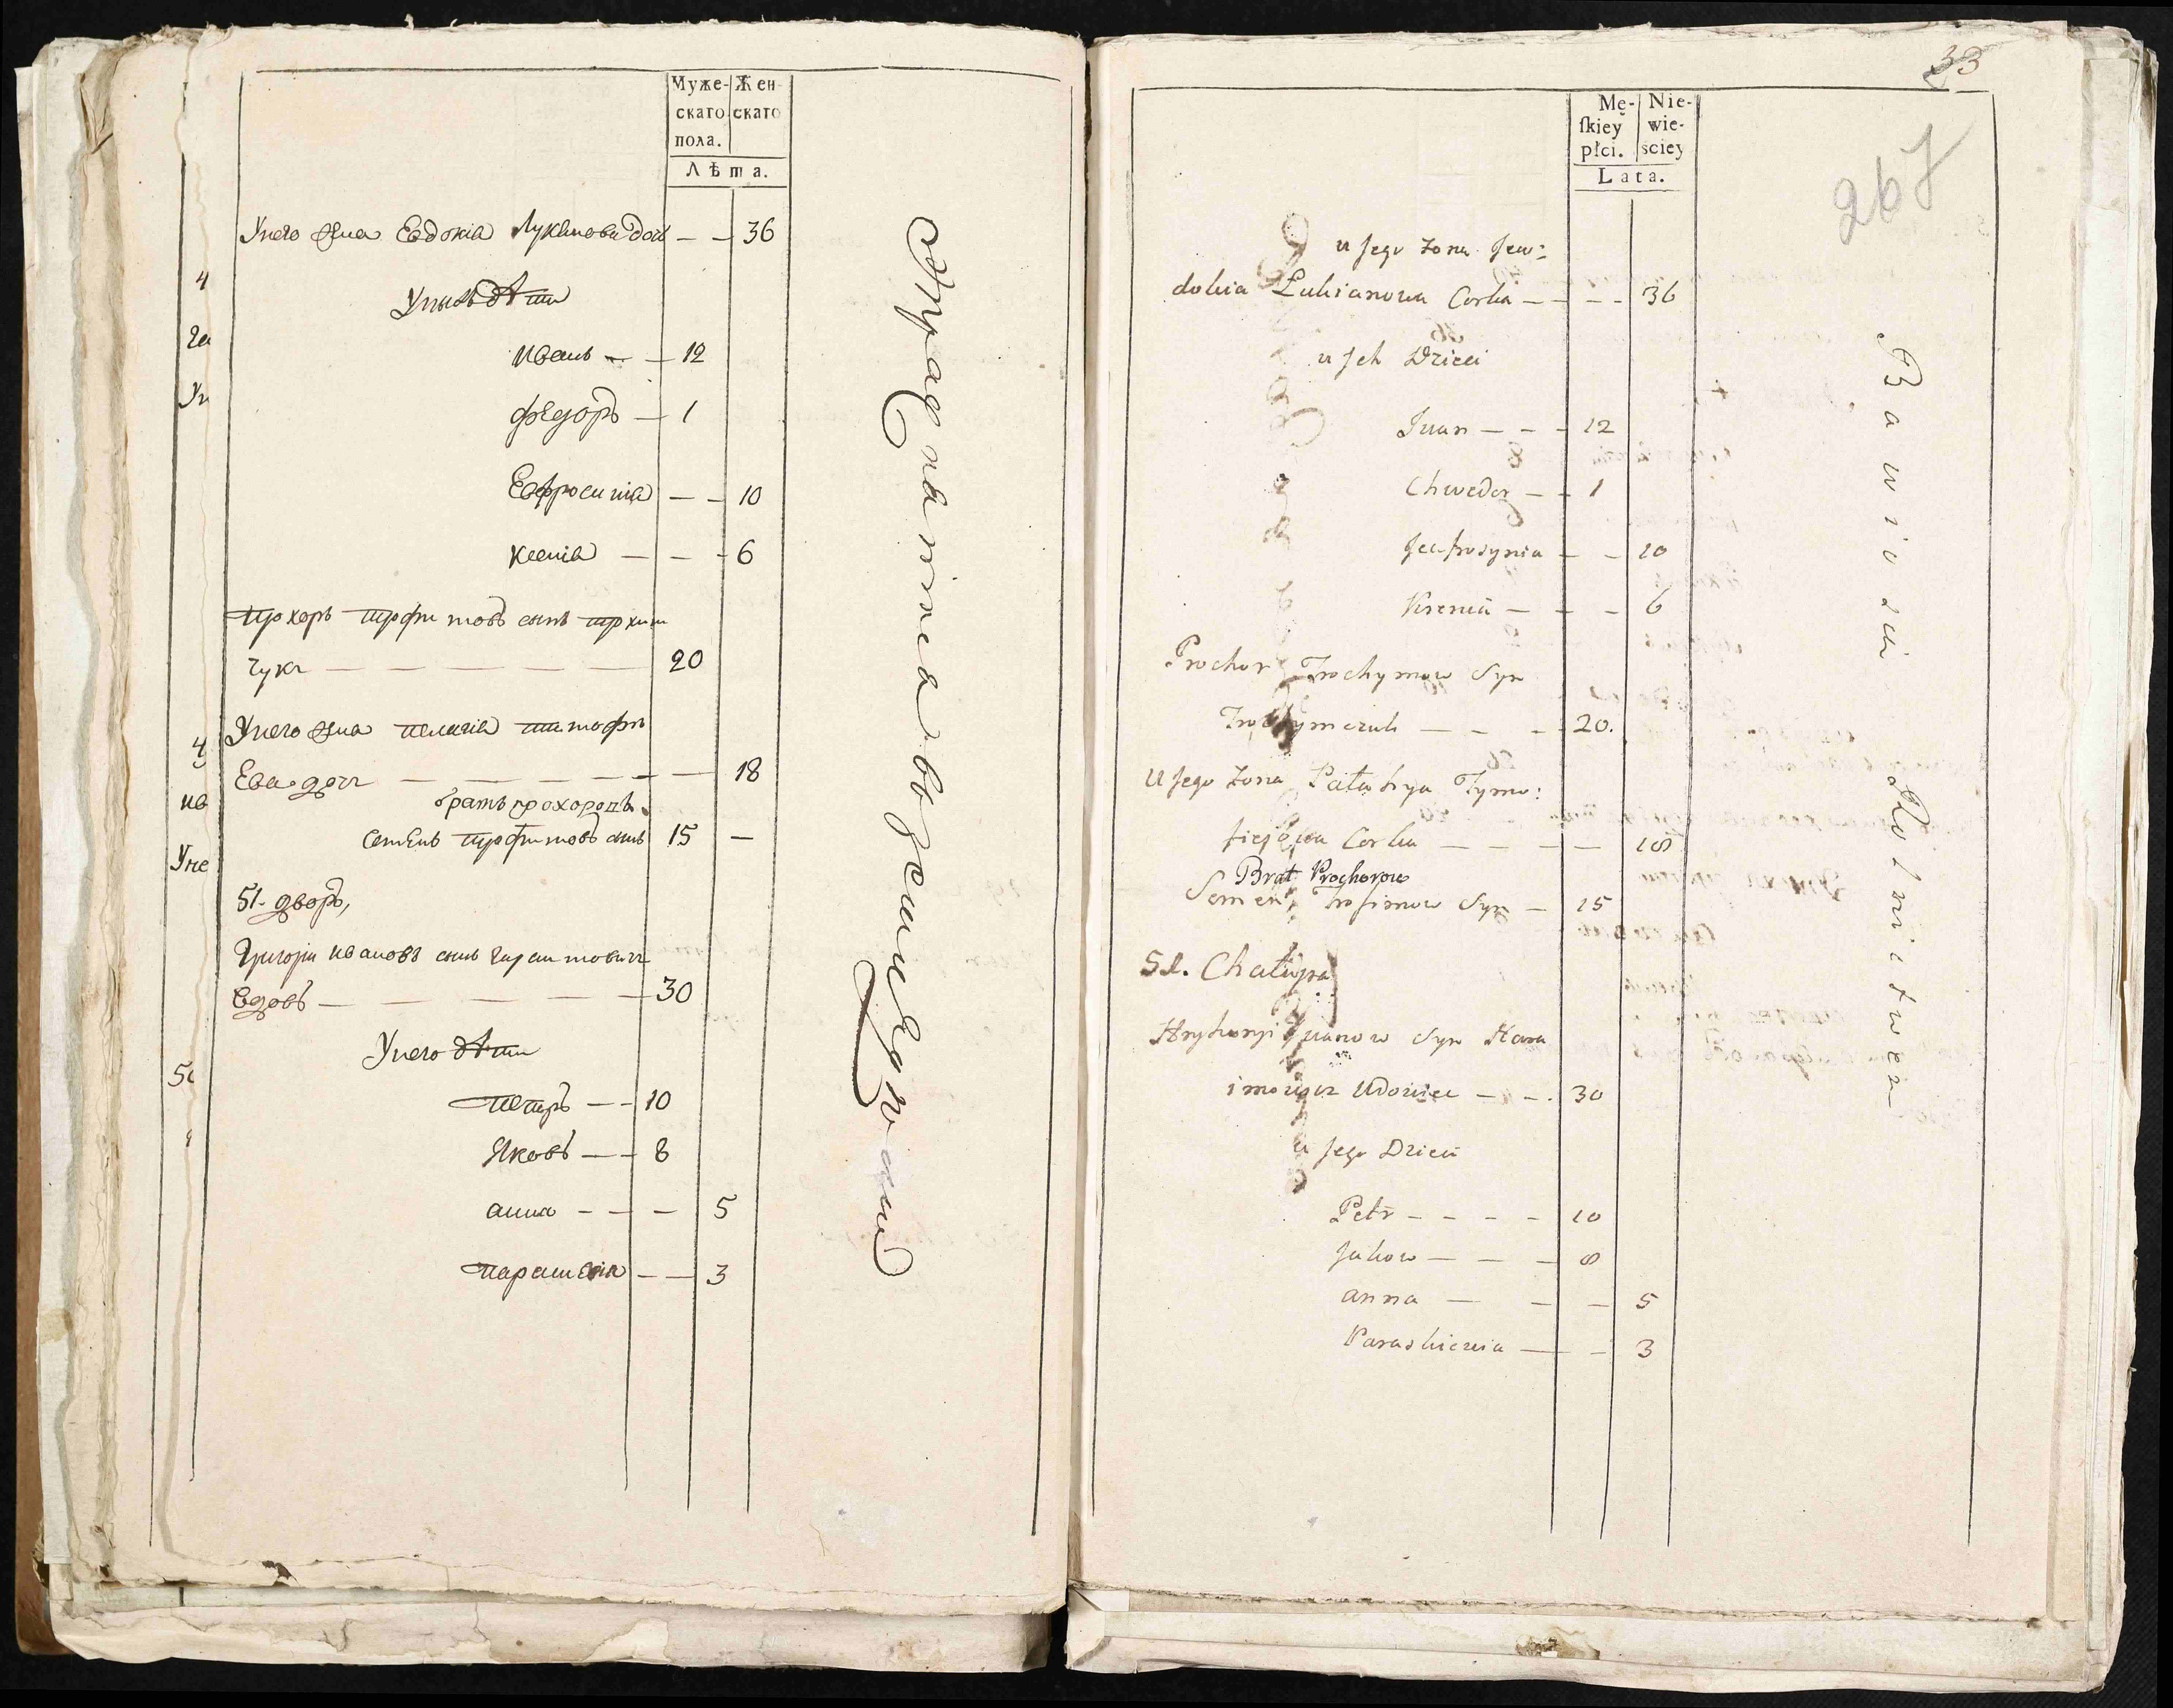 Муже- Жен-
скаго скаго
пола.
Лѣта.
Унего жена Евдокіа Лукянова дочь — — 36
Унихъ дѣти
Иванъ — — 12
Федоръ — 1
Евфросиніа — — 10
Ксеніа — — — 6
Прохоръ Трофимовъ сынъ Трхим
чукъ — — — — — 20
Унего жена Пелагіа Тимофѣ
Ева дочь — — — — — — 18
братъ прохоровъ
Семенъ Трофимовъ сынъ 15 —
51. дворъ,
Григори Ивановъ сынъ Гарасимовичъ
Вдовъ — — — — — 30
Унего дѣти
Петръ — — 10
Яковъ — — 8
анна — — — 5
парашкевіа — — 3
4
Ун
4
ив
Уне
51
33
267
Mę- Nie-
ſkiey wie-
płci. sciey
Lata.
u Jego Zona Jew:
dokia Lukianowa Corka — — — 36
u Jch Dzieci
Iwan — — — 12
Chwedor — — 1
Jewfrosynia — — 10
Ksenia — — — 6
Prochor Trochymow Syn
Trochymczuk — — — 20.
U Jego Zona Palahya Tymo:
fiejowa Corka — — — — 18
Brat Prochorow
Semen Trofimow Syn — 15
51. Chałupa
Hryhoryi Iwanow Syn Hara
imowicz Udowiec — — . 30
u Jego Dzieci
Petr — — — — 10
Jakow — — — 8
anna — — — 5
Paraskiewia — — 3